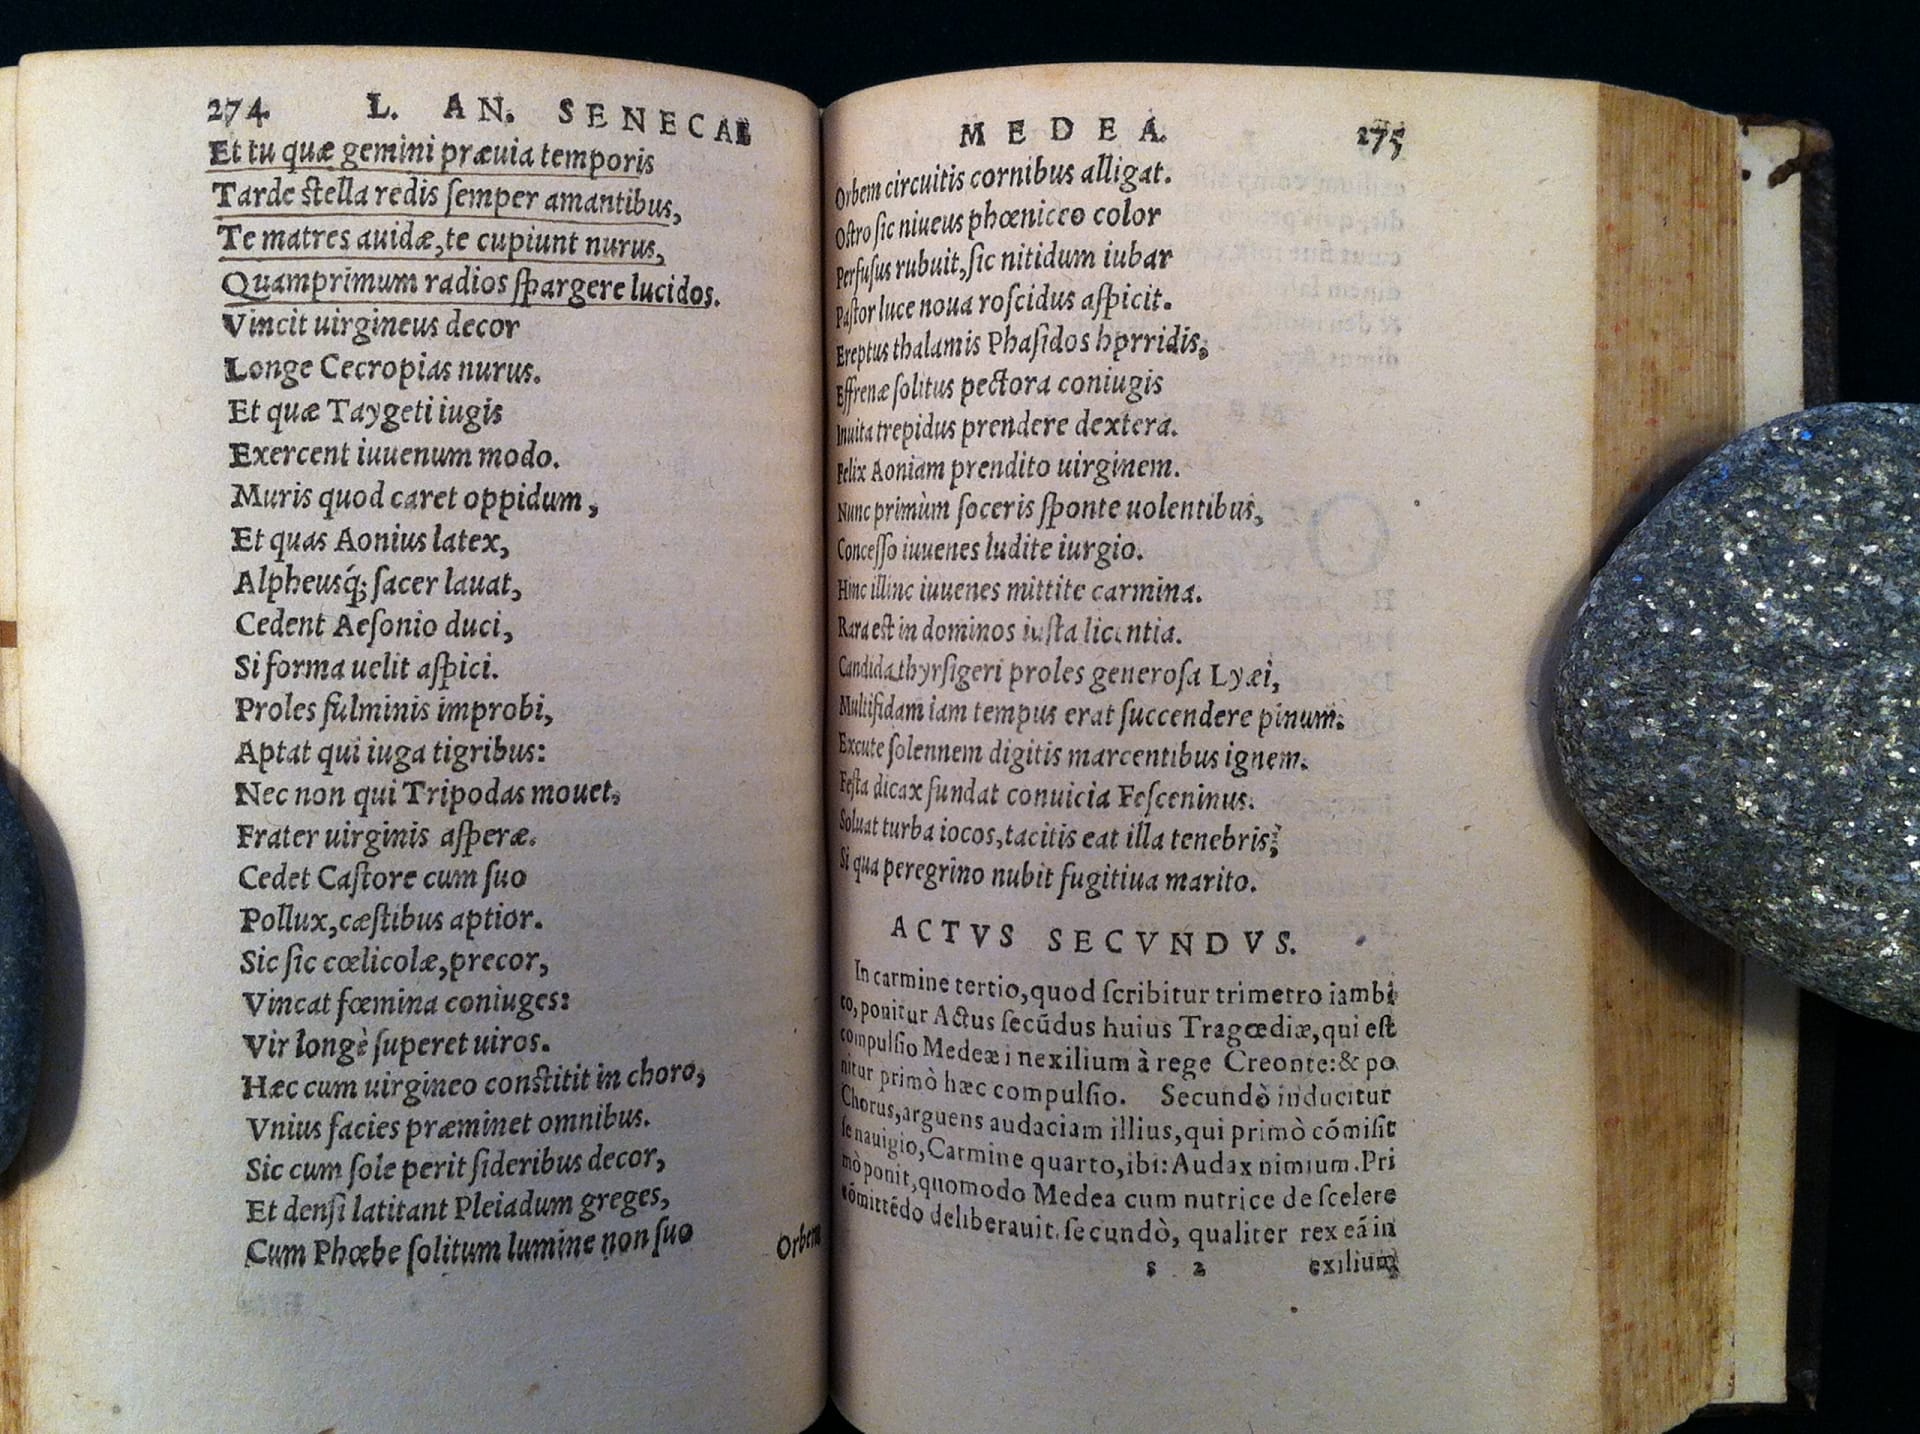 274 L. AN. SENECAE
Et tu quæ gemini præuia temporis
Tarde ſtella redis ſemper amantibus,
Te matres auidæ, te cupiunt nurus,
Quamprimum radios ſpargere lucidos.
Vincit uirgineus decor
Longe Cecropias nurus.
Et quæ Taygeti iugis
Exercent iuuenum modo.
Muris quod caret oppidum,
Et quas Aonius latex,
Alpheusq́; ſacer lauat,
Cedent Aeſonio duci,
Si forma uelit aſpici.
Proles fulminis improbi,
Aptat qui iuga tigribus:
Nec non qui Tripodas mouet,
Frater uirginis aſperæ.
Cedet Caſtore cum ſuo
Pollux, cæſtibus aptior.
Sic ſic cœlicolæ, precor,
Vincat fœmina coniuges:
Vir longè ſuperet uiros.
Hæc cum uirgineo conſtitit in choro,
Vnius facies præminet omnibus.
Sic cum ſole perit ſideribus decor,
Et denſi latitant Pleiadum greges,
Cum Phœbe ſolitum lumine non ſuo
Orbem
MEDEA. 275
Orbem circuitis cornibus alligat.
Oſtro ſic niueus phœnicco color
Perfuſus rubuit, ſic nitidum iubar
Paſtor luce noua roſcidus aſpicit.
Ereptus thalamis Phaſidos horridis,
Effrenæ ſolitus pectora coniugis
Inuita trepidus prendere dextera.
Felix Aoniam prendito uirginem.
Nunc primùm ſoceris ſponte uolentibus,
Conceſſo iuuenes ludite iurgio.
Hinc illinc iuuenes mittite carmina.
Rara eſt in dominos iuſta licentia.
Candida thyrſigeri proles generoſa Lyæi,
Multifidam iam tempus erat ſuccendere pinum.
Excute ſolennem digitis marcentibus ignem.
Feſta dicax fundat conuicia Feſceninus.
Soluat turba iocos, tacitis eat illa tenebris,
Si qua peregrino nubit fugitiua marito.
ACTVS SECVNDVS.
In carmine tertio, quod ſcribitur trimetro iambi
co, ponitur Actus ſecũdus huius Tragœdiæ, qui eſt
compulſio Medeæ i nexilium à rege Creonte: & po
nitur primò hæc compulſio. Secundò inducitur
Chorus, arguens audaciam illius, qui primò cómiſit
ſe nauigio, Carmine quarto, ibi: Audax nimium. Pri
mò ponit, quomodo Medea cum nutrice de ſcelere
cõmittẽdo deliberauit. ſecundò, qualiter rex eã in
s 2 exilium